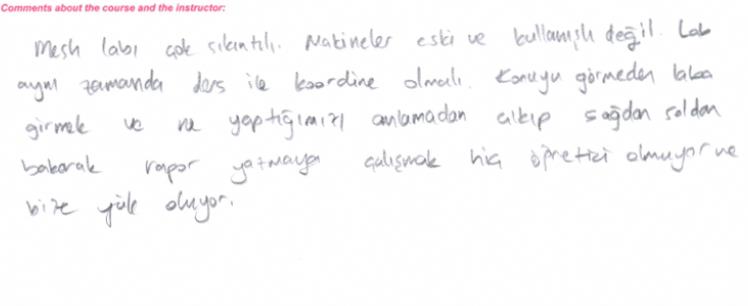 Comments about the course and the instructor:
Mesh labı çok sıkıntılı. Makineler eski ve kullanışlı değil. Lab
aynı zamanda ders ile koordine olmalı. Konuyu görmeden laba
girmek ve ne yaptığımızı anlamadan çıkıp sağdan soldan
bakarak rapor yazmaya çalışmak hiç öğretici olmuyor ve
bize yük oluyor.